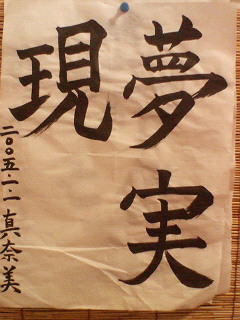 夢実
現
二〇〇五・一・二 真奈美